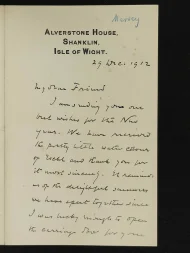 Murray
ALVERSTONE HOUSE,
SHANKLIN,
ISLE OF WIGHT.
29 Dec. 1912
My dear Friend
I am sending you our
best wishes for the New
year. We have received
the pretty little water colour
of and thank you for
it most sincerely. It reminds
us of the delightful summers
we have spent together since
I was lucky enough to open
the carriage door for you